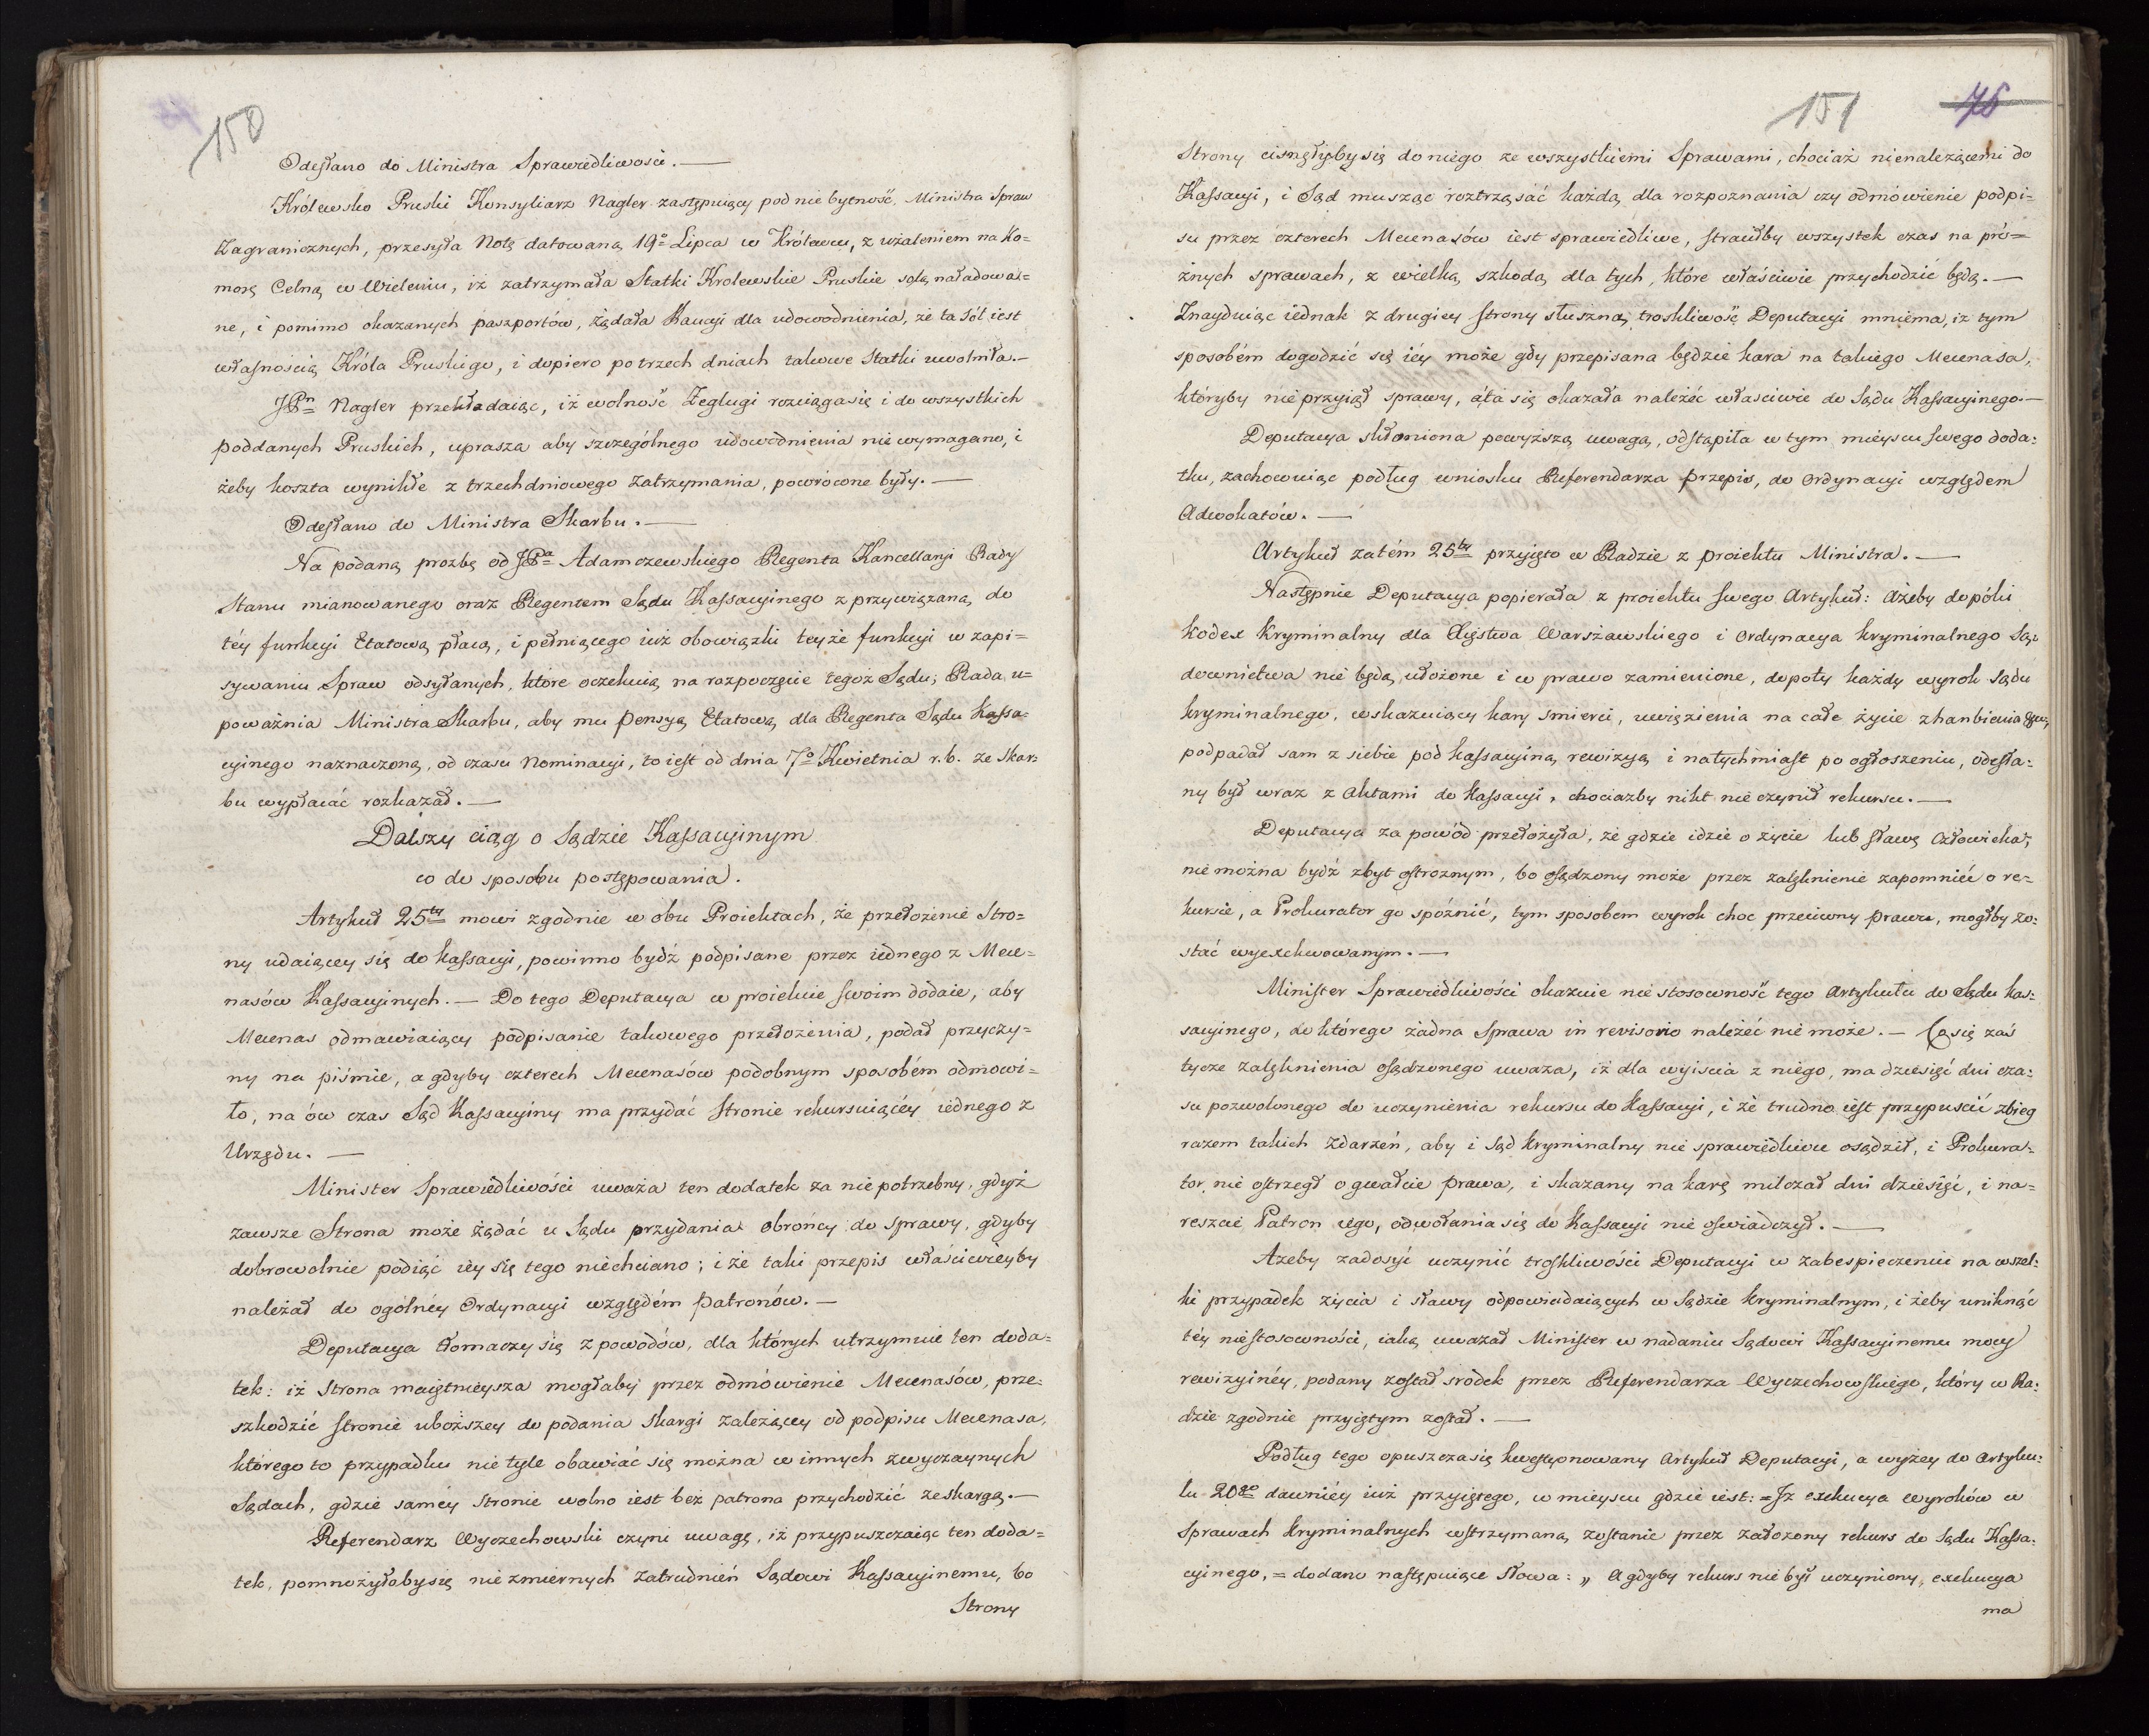 150
Odesłano do Ministra Sprawiedliwości. —
Królewsko Pruski Konsyliarz Nagler zastępuiący pod nie bytność, Ministra Spraw
Zagranicznych, przesyła Notę datowaną 19º Lipca w Królewcu, z użaleniem na Ko=
morę Celną w Wieleniu, iż zatrzymała Statki Krolewskie Pruskie solą naładowa=
ne, i pomimo okazanych paszportów, żądała Kaucyi dla udowodnienia, że ta sól iest
własnością Króla Pruskiego, i dopiero po trzech dniach takowe Statki uwolniła. —
JPn Nagler przekładaiąc, iż wolność Żeglugi rozciąga się i do wszystkich
poddanych Pruskich, uprasza aby szczególnego udowodnienia nie wymagano, i
żeby koszta wynikłe z trzechdniowego zatrzymania, powrócone były. —
Odesłano do Ministra Skarbu. —
Na podaną prozbę od JPa Adamczewskiego Regenta Kancellaryi Rady
Stanu mianowanego oraz Regentem Sądu Kassacyinego z przywiązaną do
téy funkcyi Etatową płacą, i pełniącego iuż obowiązki teyże funkcyi w zapi=
sywaniu Spraw odsyłanych, które oczekuią na rozpoczęcie tegoż Sądu; Rada u=
poważnia Ministra Skarbu, aby mu pensyą Etatową dla Regenta Sądu Kassa=
cyinego naznaczoną, od czasu Nominacyi, to iest od dnia 7º Kwietnia r. b. ze Skar=
bu wypłacać rozkazał. —
Dalszy ciąg o Sądzie Kassacyinym
co do sposobu postępowania.
Artykuł 25ty mowi zgodnie w obu Proiektach, że przełożenie Stro=
ny udaiącey się do kassacyi, powinno bydź podpisane przez iednego z Mece=
nasów Kassacyinych. — Do tego Deputacya w proiekcie swoim dodaie, aby
Mecenas odmawiaiący podpisanie takowego przełożenia, podał przyczy=
ny na piśmie, a gdyby czterech Mecenasów podobnym sposobém odmowi=
ło, na ów czas Sąd Kassacyiny ma przydać stronie rekursuiącéy iednego z
Urzędu. —
Minister Sprawiedliwości uważa ten dodatek za nie potrzebny, gdyż
zawsze Strona może żądać u Sądu przydania obrońcy do sprawy, gdyby
dobrowolnie podiąć iey się tego niechciano; i że taki przepis właściwieyby
należał do ogólnéy Ordynacyi względém patronów. —
Deputacya tłomaczy się z powodów, dla których utrzymuie ten doda=
tek: iż Strona maiętnieysza mogłaby przez odmówienie Mecenasów, prze=
szkodzić stronie uboższey do podania skargi zależącey od podpisu Mecenasa,
którego to przypadku nie tyle obawiać się można w innych zwyczaynych
Sądach, gdzie saméy Stronie wolno iest bez patrona przychodzić ze skargą. —
Referendarz Wyczechowski czyni uwagę, iż przypuszczaiąc ten doda=
tek, pomnożyłoby się nie zmiernych zatrudnień Sądowi Kassacyinemu, bo
Strony
151 75
Strony cisnęłyby się do niego ze wszystkiemi Sprawami, chociaż nienależącemi do
Kassacyi, i Sąd musząc roztrząsać każdą, dla rozpoznania czy odmówienie podpi=
su przez czterech Mecenasów iest sprawiedliwe, strawiłby wszystek czas na pró=
żnych sprawach, z wielką szkodą dla tych, które właściwie przychodzić będą. —
Znayduiąc iednak z drugiey strony słuszną troskliwość Deputacyi mniema, iż tym
sposobém dogodzić się iéy może gdy przepisana będzie kara na takiego Mecenasa,
któryby nie przyiął sprawy, a ta się okazała należéć właściwie do Sądu Kassacyinego. —
Deputacya skłoniona powyższą uwagą, odstąpiła w tym mieyscu swego doda=
tku, zachowuiąc podług wniosku Referendarza przepis, do Ordynacyi względem
Adwokatów. —
Artykuł zatém 25ty przyięto w Radzie z proiektu Ministra. —
Następnie Deputacya popierała z proiektu swego Artykuł: Ażeby dopóki
kodex kryminalny dla Xięstwa Warszawskiego i Ordynacya kryminalnego Są=
downictwa nie będą ułożone i w prawo zamienione, dopoty każdy wyrok Sądu
kryminalnego, wskazuiący kary smierci, uwięzienia na całe życie zhanbienia
podpadał sam z siebie pod kassacyiną rewizyą i natychmiast po ogłoszeniu, odesła=
ny był wraz z Aktami do Kassacyi, chociażby nikt nie czynił rekursu. —
Deputacya za powód przełożyła, że gdzie idzie o życie lub sławę człowieka,
nie można bydź zbyt ostrożnym, bo osądzony może przez zalęknienie zapomnieć o re=
kursie, a Prokurator go spóźnić, tym sposobem wyrok choc przeciwny prawu, mogłby zo=
stać wyexekwowanym. —
Minister Sprawiedliwości okazuie nie stosowność tego Artykułu do Sądu kas=
sacyinego, do którego żadna Sprawa in revisorio należéć nie może. — Co się zaś
tycze zalęknienia osądzonego uważa, iż dla wyiscia z niego, ma dziesięć dni cza=
su pozwolonego do uczynienia rekursu do Kassacyi, i że trudno iest przypuścić zbieg
razem takich zdarzeń, aby i Sąd kryminalny nie sprawiedliwie osądził, i Prokura=
tor nie ostrzegł o gwałcie prawa, i skazany na karę milczał dni dziesięć, i na=
reszcie Patron iego, odwołania się do Kassacyi nie oswiadczył. —
Ażeby zadosyć uczynić troskliwości Deputacyi w zabespieczeniu na wszel=
ki przypadek życia i sławy odpowiadaiących w Sądzie kryminalnym, i żeby uniknąć
téy niestosowności, iaką uważał Minister w nadaniu Sądowi Kassacyinemu mocy
rewizyinéy, podany został srodek przez Referendarza Wyczechowskiego, który w Ra=
dzie zgodnie przyiętym został. —
Podług tego opuszcza się kwestyonowany Artykuł Deputacyi, a wyżey do Artyku=
łu 20go dawniéy iuż przyiętego, w mieyscu gdzie iest: = Iż exekucya wyroków w
Sprawach kryminalnych wstrzymaną zostanie przez założony rekurs do Sądu Kassa=
cyinego, = dodano następuiące słowa: „ A gdyby rekurs nie był uczyniony, exekucya
ma